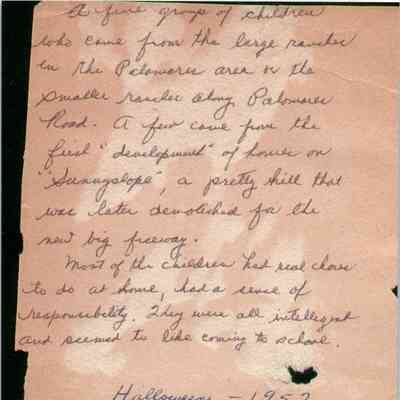 A fine group of children
who came from the large ranches
in the Palomares area or the
smaller ranches along Palomares
Road. A few came from the
first "development" of homes on
"Sunnyslope", a pretty hill that
was later demolished for the
new big freeway.
Most of the children had real chores
to do at home, had a sense of
responsibility. They were all intelligent
and seemed to like coming to school.
Halloween - 1952